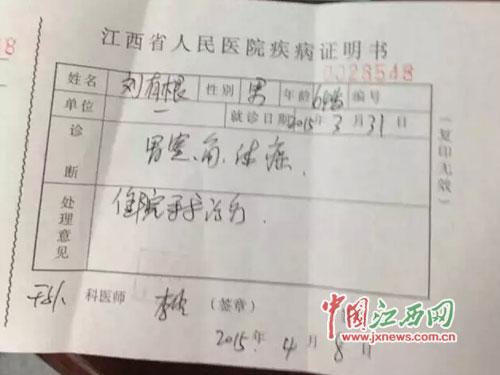 江西省人民医院疾病证明书
0028548
姓名 刘有根 性别 男 年龄 编号
单位 一 就诊日期 2015年3月31日
诊断 胃窦、角、体癌.
处理意见 住院手术治疗.
科医师 李 (签章)
2015.年4月8日
(复印无效)
中国江西网
www.jxnews.com.cn